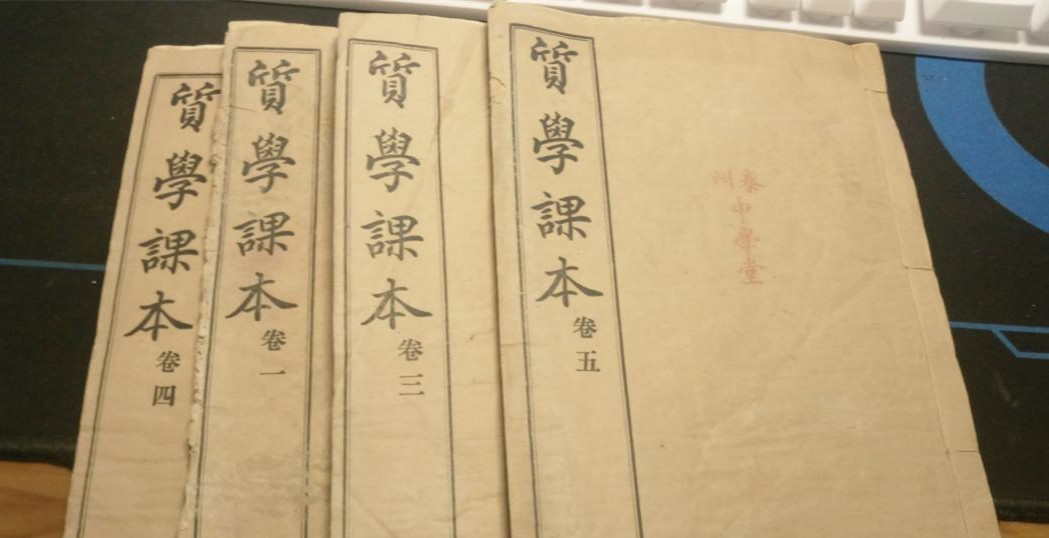 質學課本
卷四
質學課本
卷一
質學課本
卷三
質學課本
卷五
泰州
中學堂